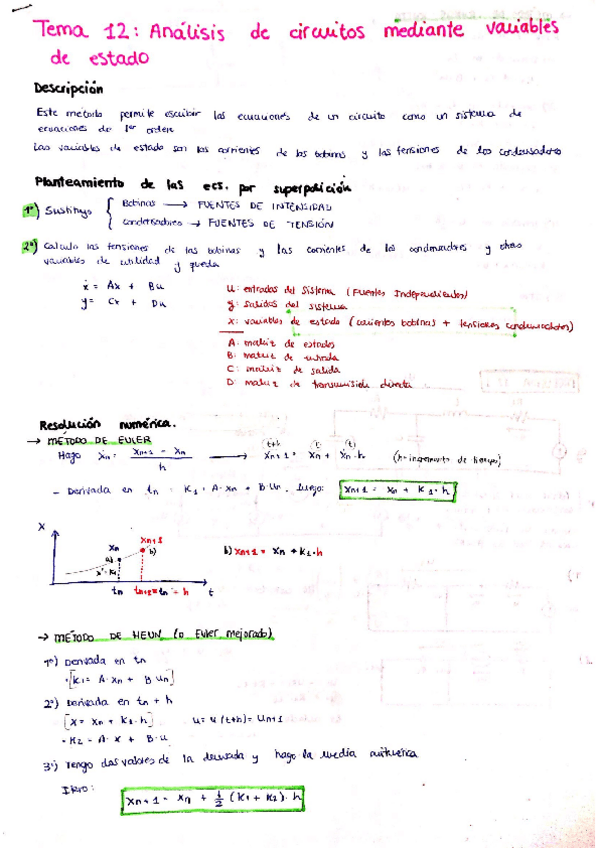 Tema 12: Análisis de circuitos mediante variables
de estado
Descripción
Este método permite escribir las ecuaciones de un circuito como un sistema de
ecuaciones de 1er orden
Las variables de estado son las corrientes de las bobinas y las tensiones de los condensadores
Planteamiento de las ecs. por superposición
1º) Sustituyo { Bobinas → FUENTES DE INTENSIDAD
Condensadores → FUENTES DE TENSIÓN
2º) Calculo las tensiones de las bobinas y las corrientes de los condensadores y otras
variables de utilidad y queda
ẋ = Ax + Bu
y = Cx + Du
u: entradas del sistema (Fuentes Independientes)
y: salidas del sistema
x: variables de estado (corrientes bobinas + tensiones condensadores)
A: matriz de estados
B: matriz de entrada
C: matriz de salida
D: matriz de transmisión directa
Resolución numérica.
→ MÉTODO DE EULER
Hago ẋn = (xn+1 - xn) / h → xn+1 = xn + ẋn·h (h=incremento de tiempo)
(t+h) (t) (t)
- Derivada en tn = K1 = A·xn + B·un. Luego: xn+1 = xn + K1·h
x
xn a) xn+1 b)
x'=K1
tn tn+1=tn+h t
b) xn+1 = xn + K1·h
→ MÉTODO DE HEUN (o Euler mejorado)
1º) Derivada en tn
·[K1 = A·xn + B·un]
2º) Derivada en tn + h
[x = xn + K1·h] u = u(t+h) = un+1
·K2 = A·x + B·u
3º) Tengo dos valores de la derivada y hago la media aritmética
xn+1 = xn + 1/2 (K1 + K2)·h